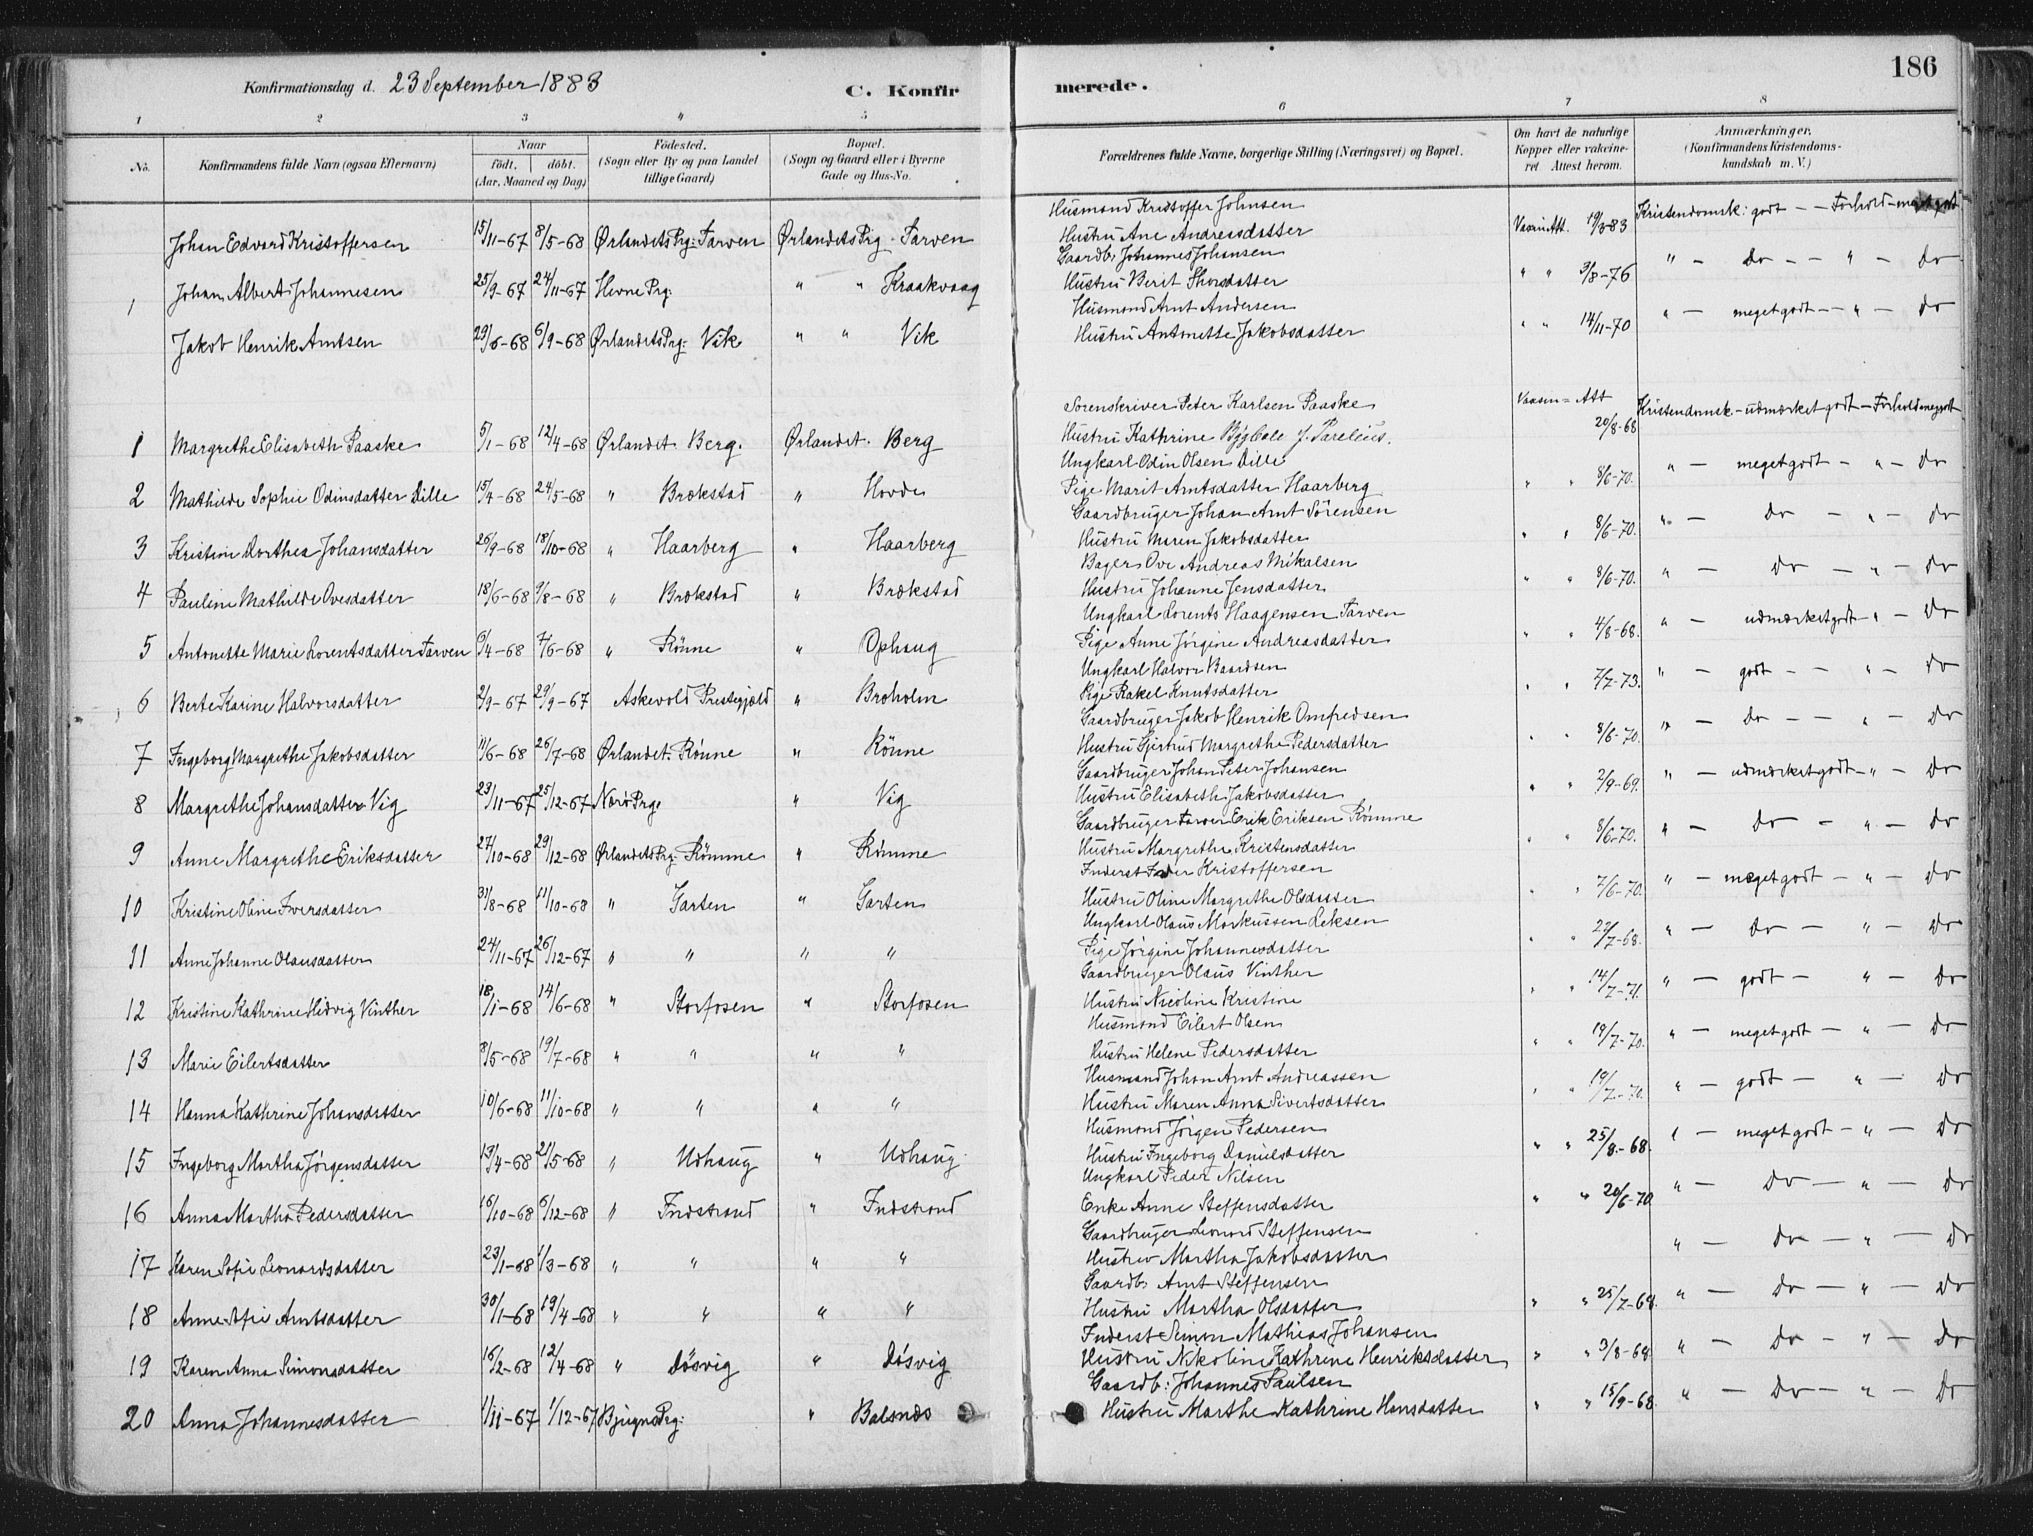 186
Konfirmationsdag d. 23 September 1883
C. Konfirmerede.
1 2 3 4 5 6 7 8
No. Konfirmandens fulde Navn (ogsaa Efternavn) Naar født, døbt. (Aar, Maaned og Dag) Fødested. (Sogn eller By og paa Landet tillige Gaard) Bopæl. (Sogn og Gaard eller i Byerne Gade og Hus-No. Forældrenes fulde Navne, borgerlige Stilling (Næringsvei) og Bopæl. Om havt de naturlige Kopper eller vakcineret Attest herom. Anmærkninger. (Konfirmandens Kristendomskundskab m. V.)
Husmand Kristoffer Johnsen
Johan Edvard Kristoffersen 15/11-67 8/5-68 Ørlandets Prg: Tarven Ørlandets Prg. Tarven Hustru Ane Andreasdatter Vaccin Att. 19/8-83 Kristendomsk: godt - - Forhold - meget godt
Gaardb: Johannes Johansen
Johan Albert Johannesen 25/9-67 24/11-67 Hevne Prg: " " Kraakvaag Hustru Berit Thorsdatter " " 3/8-76 " - Do - - " - Do
Husmand Arnt Andersen
Jakob Henrik Arntsen 29/6-68 6/9-68 Ørlandets Prg: Vik " " Vik Hustru Antonette Jakobsdatter " " 14/11-70 " - meget godt - - " - Do
Sorenskriver Peter Karlsen Paaske
1 Margrethe Elisabeth Paaske 5/1-68 12/4-68 Ørlandet Berg. Ørlandet. Berg Hustru Kathrine f. Parelius. Vaccin = Att 20/8-68 Kristendomsk - udmærket godt - Forhold meg godt
Ungkarl Odin Olsen Dille
2 Mathilde Sophie Odinsdatter Dille 15/4-68 24/5-68 " Brækstad " Hovde Pige Marit Arntsdatter Haarberg " " 8/6-70. " - meget godt - " - Do
Gaardbruger Johan Arnt Sörensen
3 Kristine Dorthea Johansdatter 26/9-68 18/10-68 " Haarberg " Haarberg Hustru Maren Jakobsdatter " " 8/6-70. " - Do - " - Do
Bager Ove Andreas Mikalsen
4 Pauline Mathilde Ovesdatter 18/6-68 9/8-68 " Brækstad " Brækstad Hustru Johanne Jensdatter " " 8/6-70. " - Do - " - Do
Ungkarl Lorents Haagensen Tarven
5 Antonette Marie Lorentsdatter Tarven 6/4-68 7/6-68 " Rönne " Ophaug Pige Anne Jörgine Andreasdatter " " 4/8-68. " - udmærket godt - " - Do
Ungkarl Halvor Baardsen
6 Berte Karine Halvorsdatter 2/9-67 29/9-67 Askevold Prestegjæld " Broholm Pige Rakel Knutsdatter " " 7/7-73. " - godt - - " - do
Gaardbruger Jakob Henrik Omfredsen
7 Ingeborg Margrethe Jakobsdatter 11/6-68 26/7-68 Ørlandet. Rönne " Rönne Hustru Gjertrud Margrethe Pedersdatter " " 8/6-70. " - Do - - " - Do
Gaardbruger Johan Peter Johansen
8 Margrethe Johansdatter Vig 23/11-67 25/12-67 Nærö Prg: " Vig Hustru Elisabeth Jakobsdatter " " 2/9-69. " - udmærket godt - " - Do
Gaardbruger Farver Erik Eriksen Römme
9 Anne Margrethe Eriksdatter 27/10-68 29/12-68 Ørlandets Prg: Römme " Römme Hustru Margrethe Kristensdatter " " 8/6-70. " - Do - " - do
Inderst Iver Kristoffersen
10 Kristine Oline Iversdatter 31/8-68 11/10-68 " Garten " Garten Hustru Oline Margrethe Olsdatter " " 7/6-70. " - meget godt - " - Do
Ungkarl Olaus Markussen Leksen
11 Anne Johanne Olausdatter 24/11-67 26/12-67 " " " " Pige Jörgine Johannesdatter " " 22/7-68. " - Do - " - Do
Gaardbruger Olaus Vinther
12 Kristine Kathrine Hedvig Vinther 18/1-68 14/6-68 " Storfosen " Storfosen Hustru Nicoline Kristine " " 14/7-71. " - godt - " - Do
Husmand Eilert Olsen
13 Marie Eilertsdatter 8/5-68 19/7-68 " " " " Hustru Helene Pedersdatter " " 19/7-70. " - meget godt - " - Do
Husmand Johan Arnt Andreassen
14 Hanna Kathrine Johansdatter 10/6-68 11/10-68 " " " " Hustru Maren Anna Sivertsdatter " " 19/7-70. " - godt - " - Do
Husmand Jörgen Pedersen
15 Ingeborg Martha Jörgensdatter 13/4-68 21/5-68 " Udhaug " Udhaug Hustru Ingeborg Danielsdatter " " 25/8-68. " - meget godt - " - Do
Ungkarl Peder Nilsen
16 Anna Martha Pedersdatter 16/10-68 6/12-68 " Indstrand " Indstrand Enke Anne Steffensdatter " " 20/6-70 " - Do - " - Do
Gaardbruger Leonard Steffensen
17 Karen Sofie Leonardsdatter 23/1-68 1/3-68 " " " " Hustru Martha Jakobsdatter " - Do - " - Do
Gaardb: Arnt Steffensen
18 Anne Sofie Arntsdatter 30/1-68 19/4-68 " " " " Hustru Martha Olsdatter " " 25/7-68. " - Do - " - Do
Inderst Simon Mathias Johansen
19 Karen Anna Simonsdatter 16/2-68 12/4-68 " Dösvig " Dösvig Hustru Nikoline Kathrine Henriksdatter " " 3/8-68 " - Do - " - Do
Gaardb: Johannes Paulsen
20 Anna Johannesdatter 1/11-67 1/12-67 Bjugns Prg: " Balsnæs Hustru Marthe Kathrine Hansdatter " " 15/9-68. " - Do - " - Do